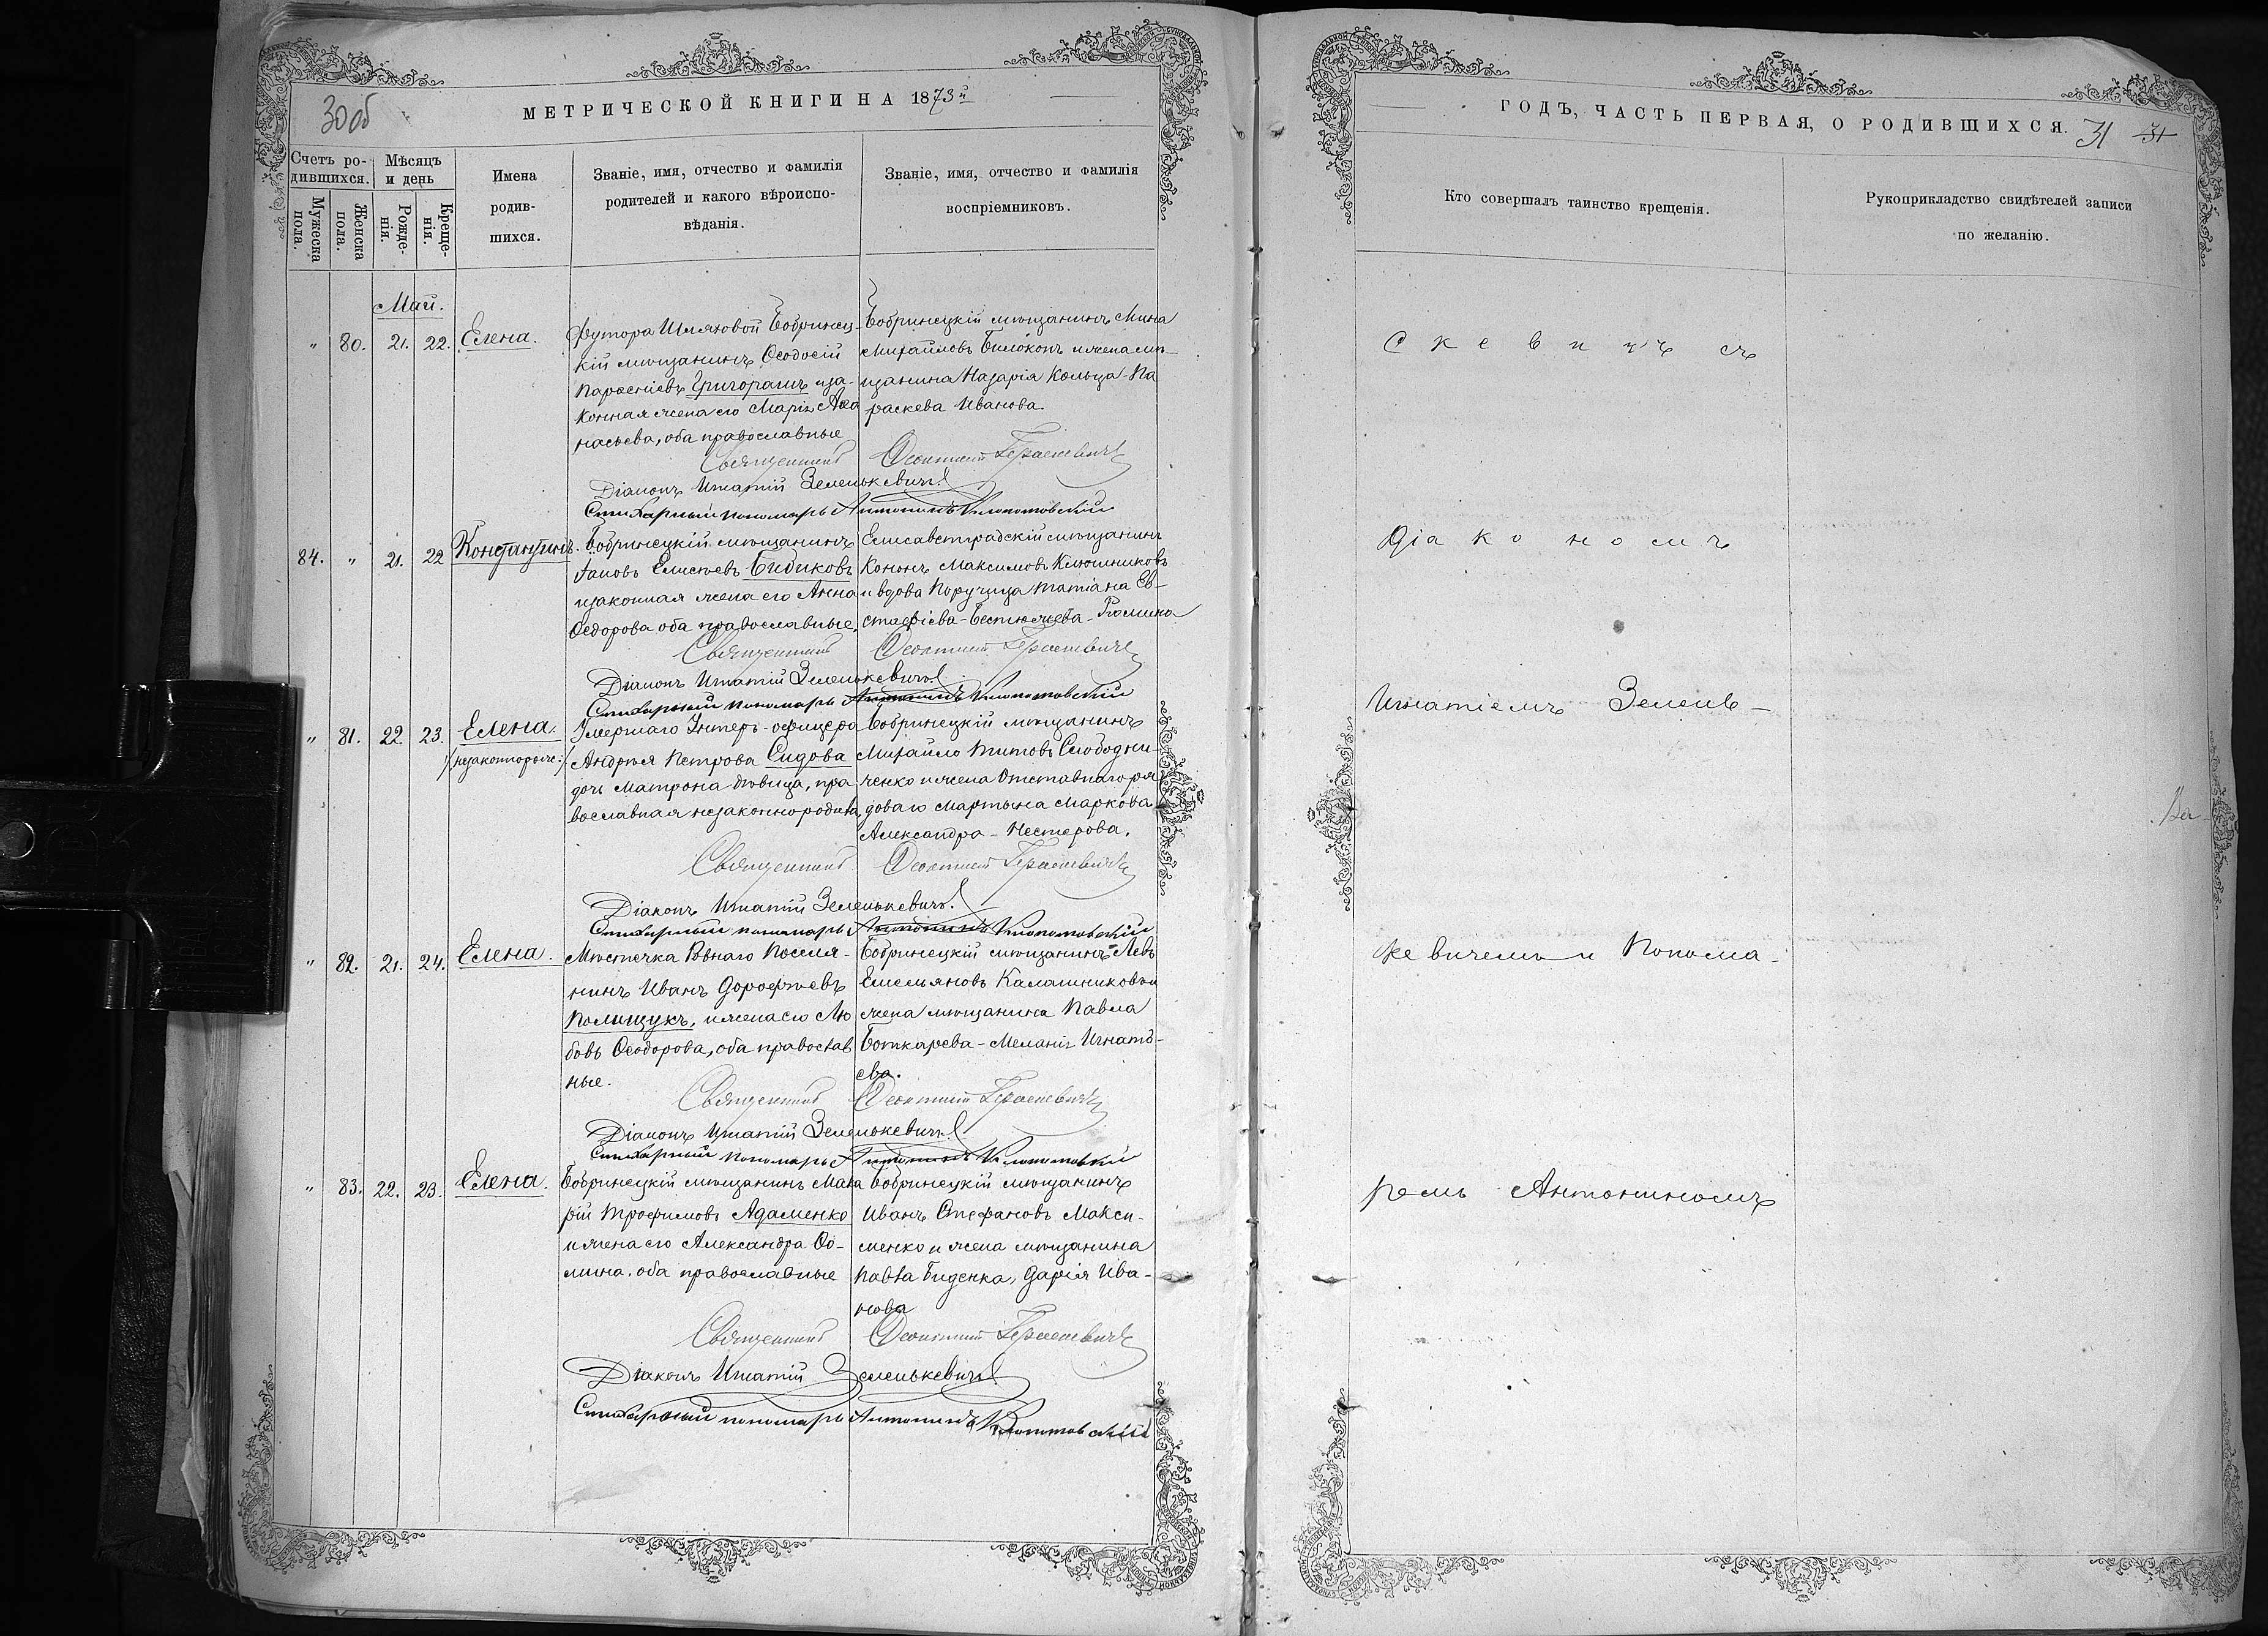 30 об
МЕТРИЧЕСКОЙ КНИГИ НА 1873й
Счетъ ро-
дившихся.
Мужеска
пола.
Женска
пола.
Мѣсяцъ
и день
Рожде-
нія.
Креще-
нія.
Имена
родив-
шихся.
Званіе, имя, отчество и фамилія
родителей и какого вѣроиспо-
вѣданія.
Званіе, имя, отчество и фамилія
воспріемниковъ.
Май.
" 80. 21. 22. Елена.
Хутора Шляховой Бобринец-
кій мѣщанинъ Ѳеодосій
Григорашъ за-
конная жена его Марія Аѳа
насьева, оба православные
Бобринецкій мѣщанинъ Мина
Михайловъ Билоконь и жена мѣ-
щанина Назарія Кольца - Па
раскева Иванова.
Священникъ Герасевичъ
Діаконъ Игнатій Зеленькевичъ
Стихарный пономарь Антонинъ Клопотовскій
84. " 21. 22 Константинъ.
Бобринецкій мѣщанинъ
Іаковъ Елисѣевъ Бибиковъ
и законная жена его Анна
Ѳедорова оба православные,
Елисаветградскій мѣщанинъ
Кононъ Максимовъ Ключниковъ
и вдова Поручица Татіана Ев-
стафіева - Бестюжева - Рюмина
Священникъ Герасевичъ
Діаконъ Игнатій Зеленькевичъ
Стихарный пономарь Антонинъ Клопотовскій
" 81. 22. 23. Елена.
/:незаконнорожд:/
Умершаго Унтеръ-офицера
Андрея Петрова Сидова
дочь Матрона дѣвица, пра
вославная незаконнородила,
Бобринецкій мѣщанинъ
Михайло Титовъ Слободни-
ченко и жена Отставнаго ря
доваго Мартына Маркова
Александра - Нестерова.
Священникъ Герасевичъ
Діаконъ Игнатій Зеленькевичъ.
Стихарный пономарь Антонинъ Клопотовскій
" 82. 21. 24. Елена.
Мѣстечка Ровнаго Поселя-
нинъ Иванъ Дорофѣевъ
Полищукъ, и жена его Лю
бовь Ѳеодорова, оба православ
ные.
Бобринецкій мѣщанинъ Левъ
Емельяновъ Калашниковъ и
жена мѣщанина Павла
Боткарева - Меланія Игнатъ-
ева.
Священникъ Герасевичъ
Діаконъ Игнатій Зеленькевичъ
Стихарный пономарь Антонинъ Клопотовскій
" 83. 22. 23. Елена.
Бобринецкій мѣщанинъ Мака
рій Трофимовъ Адаменко
и жена его Александра Ѳо-
мина, оба православные
Бобринецкій мѣщанинъ
Иванъ Стефановъ Макси-
менко и жена мѣщанина
Павла Биденка, Дарія Ива-
нова
Священникъ Герасевичъ
Діаконъ Игнатій Зеленькевичъ
Стихарный пономарь Антонинъ Клопотовскій
ГОДЪ, ЧАСТЬ ПЕРВАЯ, О РОДИВШИХСЯ. 31 31
Кто совершалъ таинство крещенія.
Рукоприкладство свидѣтелей записи
по желанію.
с к е в и ч ъ съ
Діа ко но мъ
Игнатіемъ Зелень-
кевичемъ и Понома-
ремъ Антониномъ